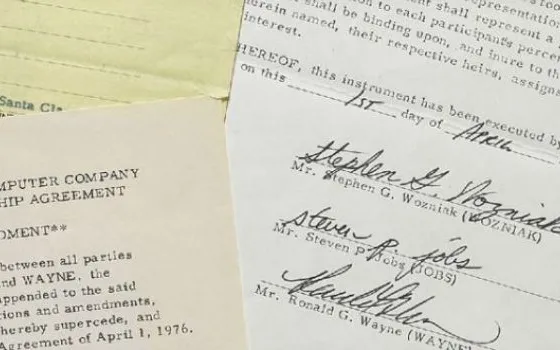 Santa Cla
MPUTER COMPANY
HIP AGREEMENT
DMENT**
between all parties
nd WAYNE, the
appended to the said
tions and amendments,
hereby supercede, and
Agreement of April 1, 1976.
representation
shall represent a
tion to each participant's perce
shall be binding upon, and inure to the
erein named, their respective heirs, assigns
interest.
HEREOF, this instrument has been executed by
on this 1ST day of APRIL
Stephen G. Wozniak
Mr. Stephen G. Wozniak (WOZNIAK)
steven p. jobs
Mr. Steven P. Jobs (JOBS)
Mr. Ronald G. Wayne (WAYNE